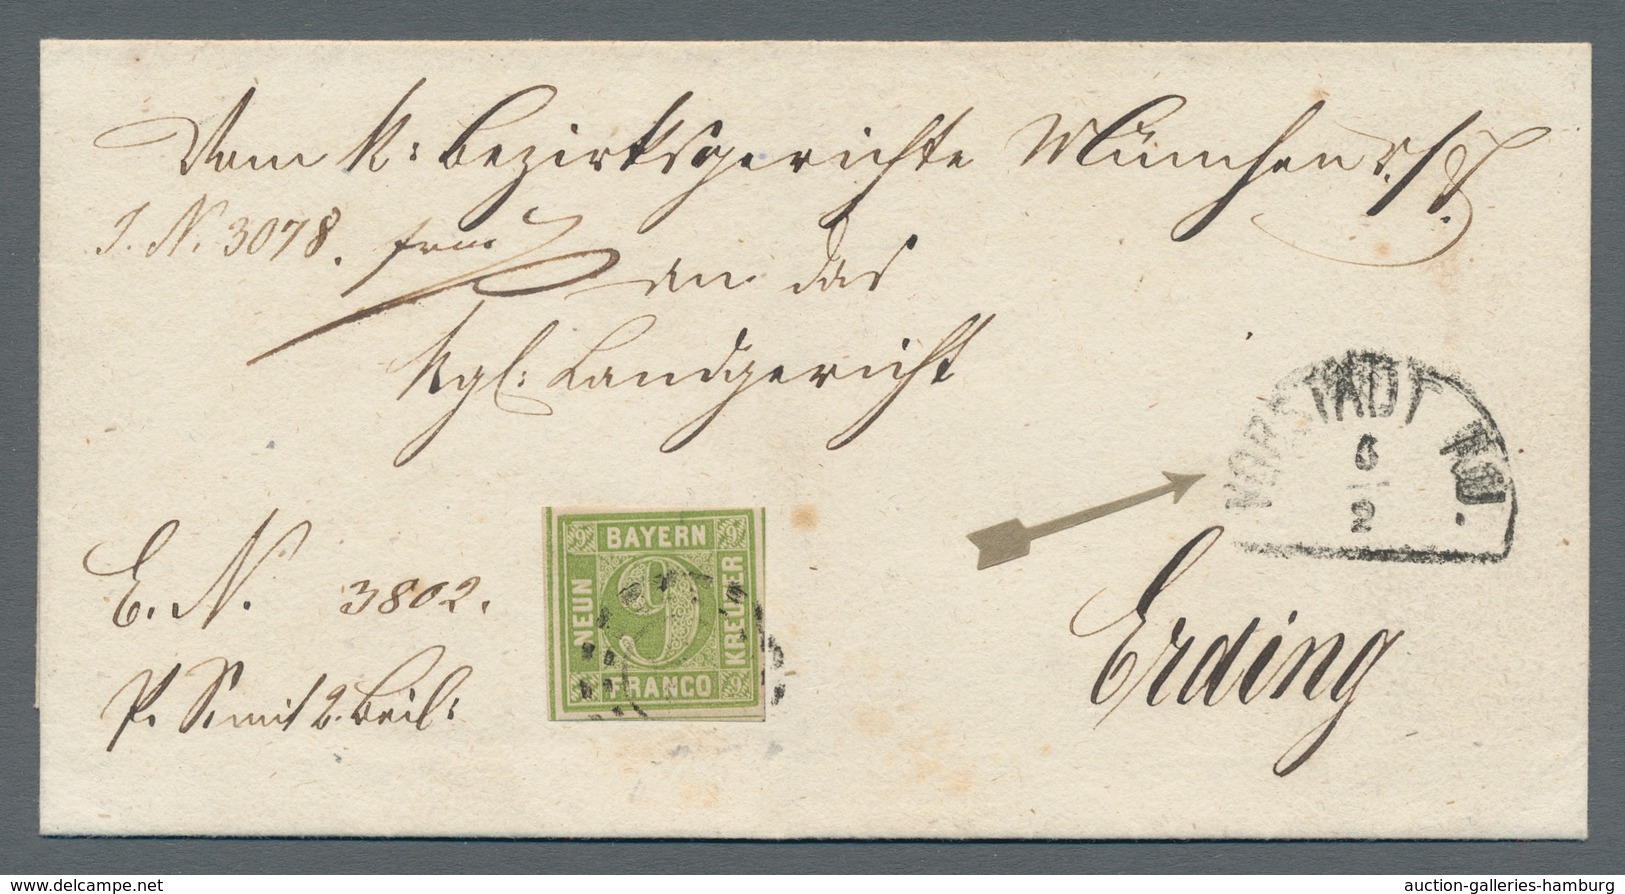 Vom k: Bezirksgerichte München r./I.
J. N. 3078. fr
an das
Kgl: Landgericht
VORSTADT AU.
6
2
E. N. 3802.
P. S. mit 2. Beil:
9 BAYERN 9
NEUN 9 KREUZER
9 FRANCO 9
Erding
© www.delcampe.net
auction-galleries-hamburg